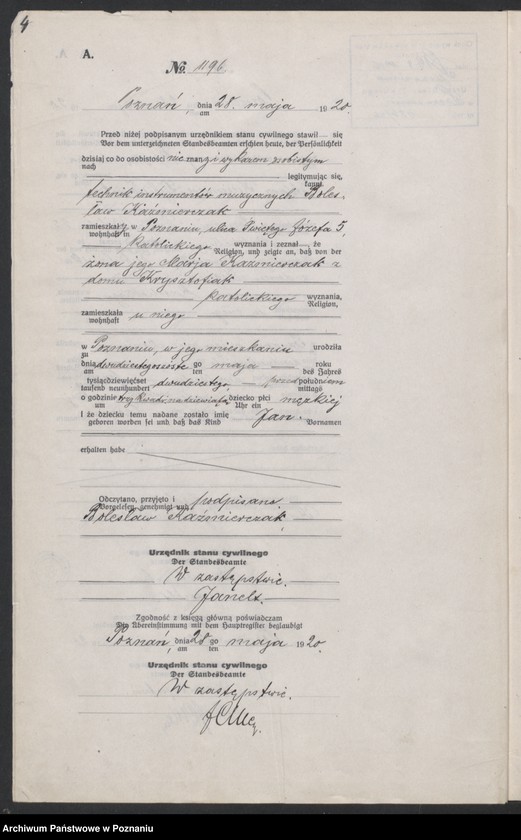 4
A.
No. 1196.
Poznań, dnia 28. maja 1920.
am
Przed niżej podpisanym urzędnikiem stanu cywilnego stawił... się
Vor dem unterzeichneten Standesbeamten erschien heute, der Persönlichkeit
dzisiaj co do osobistości nie znany i wykazem osobistym
nach
legitymując się,
kannt,
technik instrumentów muzycznych Boles-
ław Kaźmierczak
zamieszkały w Poznaniu, ulica Świętego Józefa 5,
wohnhaft in
katolickiego wyznania i zeznał... że
Religion, und zeigte an, daß von der
żona jego Marja Kaźmierczak z
domu Krysztofiak
katolickiego wyznania,
Religion,
zamieszkała u niego
wohnhaft
w Poznaniu, w jego mieszkaniu urodziła
zu
dnia dwudziestego szóstego maja roku
am ten des Jahres
tysiącdziewięćset dwudziestego, przed południem
tausend neunhundert mittags
o godzinie trzy kwadr. na dziewiątą dziecko płci męzkiej
um Uhr ein
i że dziecku temu nadane zostało imię Jan.
geboren worden sei und daß das Kind Vornamen
erhalten habe
Odczytano, przyjęto i podpisano.
Vorgelesen, genehmigt und
Bolesław Kaźmierczak.
Urzędnik stanu cywilnego
Der Standesbeamte
W zastępstwie.
Janelt.
Zgodność z księgą główną poświadczam
Die Übereinstimmung mit dem Hauptregister beglaubigt
Poznań, dnia 28 go maja 1920.
am ten
Urzędnik stanu cywilnego
Der Standesbeamte
W zastępstwie.
Archiwum Państwowe w Poznaniu